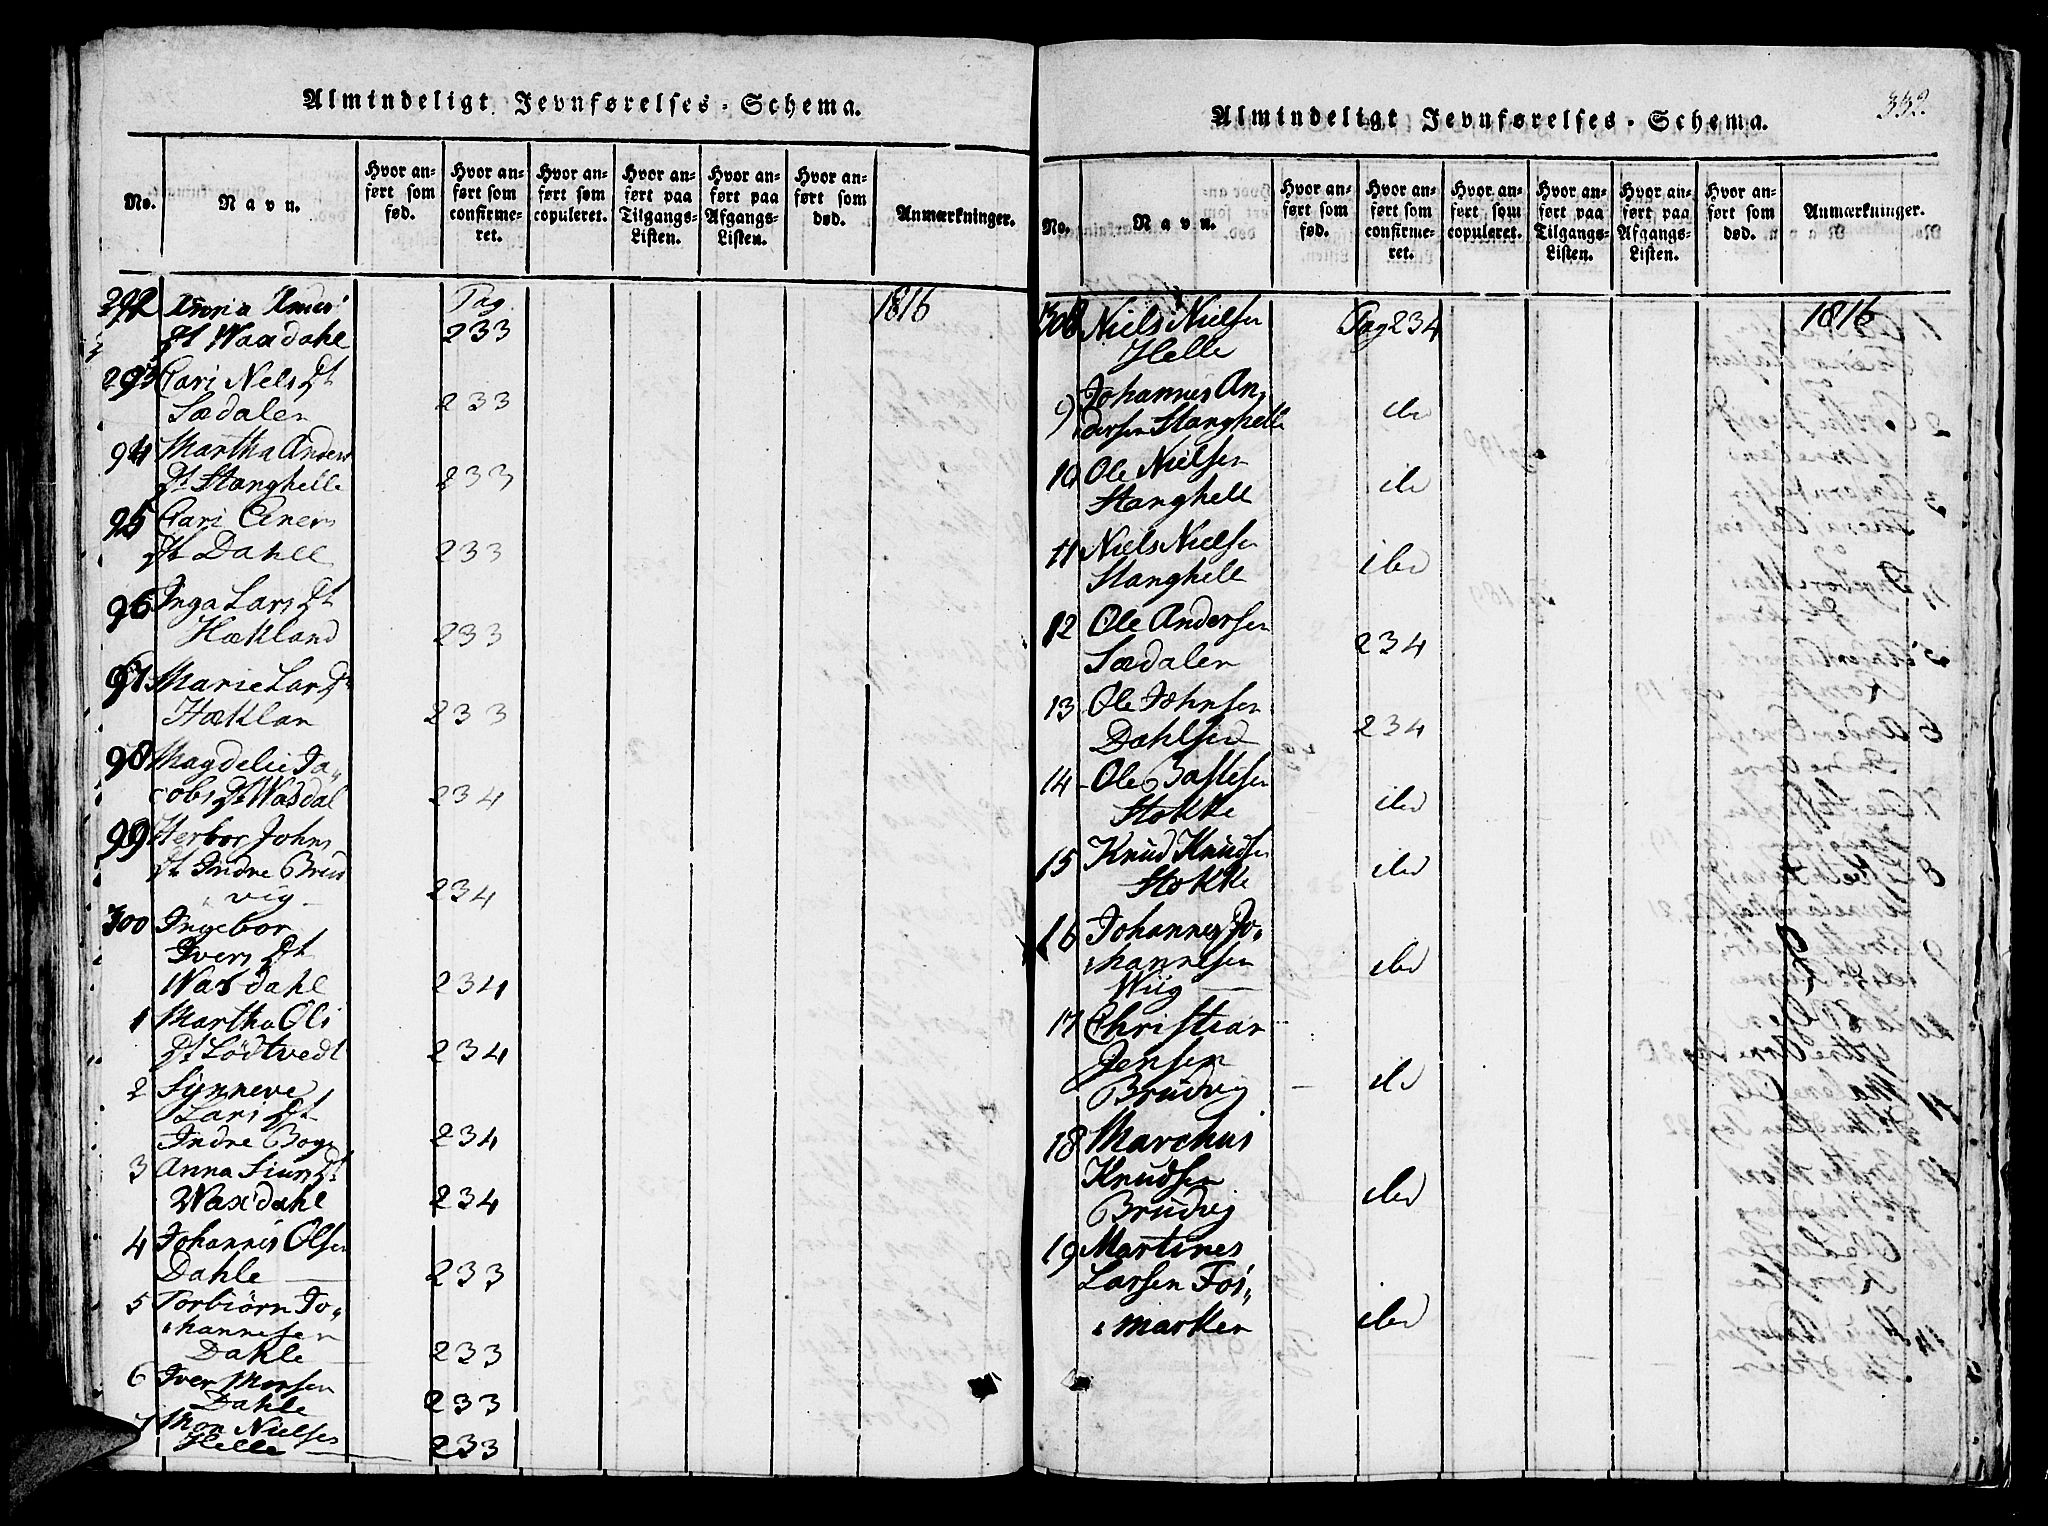 Almindeligt Jevnførelses-Schema.
No. Navn. Hvor anført som fød. Hvor anført som confirmeret. Hvor anført som copuleret. Hvor anført paa Tilgangs-Listen. Hvor anført paa Afgangs-Listen. Hvor anført som død. Anmærkninger.
292 Pag. 1816
Dt Waxdahl 233
293 Cari Nels Dt
Sædalen 233
94 Martha Anders
Dt Stanghelle 233
95 Cari Einers
Dt Dahle 233
96 Inga Lars Dt
Hækland 233
97 Marie Lars Dt
Hæklan 233
98 Magdelie Ja„
cobs Dt Wasdal 234
99 Herbor Johns
Dt Indre Brud
vig 234
300 Ingebor
Ivers Dt
Wasdahl 234
1 Martha Ols
Dt Lödtvedt 234
2 Synneve
Lars Dt
Indre Boge 234
3 Anna Siurs Dt
Waxdahl 234
4 Johannis Olsen
Dahle 233
5 Torbiörn Jo„
hannesen
Dahle 233
6 Iver Monsen
Dahle 233
7 Mon Nielsen
Helle 233
332.
Almindeligt Jevnførelses-Schema.
No. Navn. Hvor anført som fød. Hvor anført som confirmeret. Hvor anført som copuleret. Hvor anført paa Tilgangs-Listen. Hvor anført paa Afgangs-Listen. Hvor anført som død. Anmærkninger.
308 Niels Nielsen Pag 234 1816
Helle
9 Johannes An„
dersen Stanghelle ibd
10 Ole Nielsen
Stanghell ibd
11 Niels Nielsen
Stanghell ibd
12 Ole Andersen
Sædalen 234
13 Ole Johnsen
Dahlseid 234
14 Ole Bastesen
Stokke ibd
15 Knud Knudsen
Stokke ibd
16 Johannes Jo„
hannesen ibd
Wiig
17 Christian
Jensen
Brudvig ibd
18 Marchus
Knudsen
Brudvig ibd
19 Martines
Larsen Fos„
marken ibd